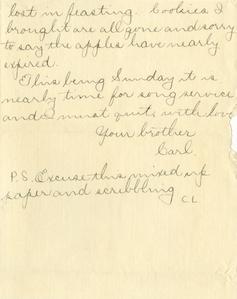 lost in feasting. Cookies I
brought are all gone and sorry
to say the apples have nearly
expired.
This being Sunday it is
nearly time for song service
and I must quit, with love
Your brother
Carl.
P.S. Excuse this mixed up
paper and scribbling
CL